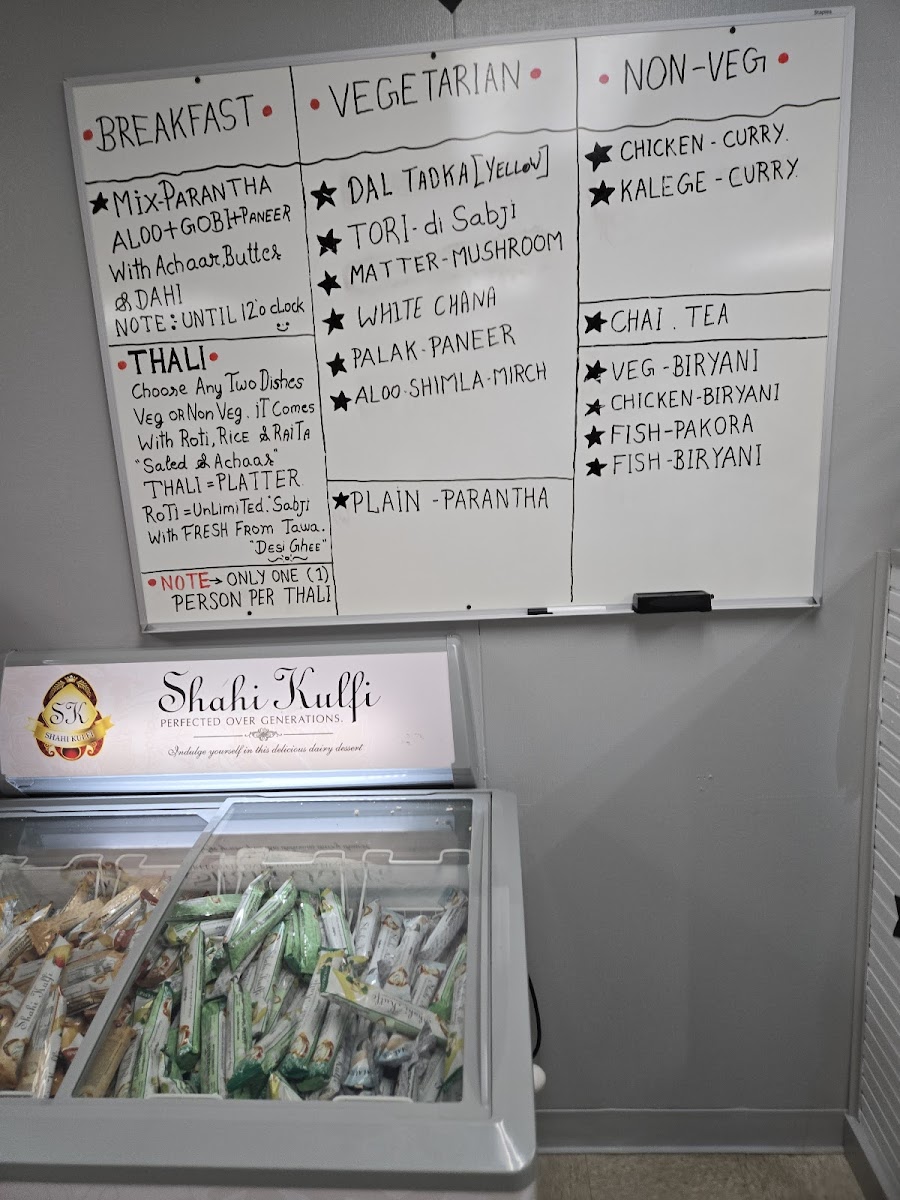 Staples
BREAKFAST
MIX-PARANTHA
ALOO+GOBI+PANEER
With Achaar, Butter
& DAHI
NOTE: UNTIL 12'o cLock
THALI
Choose Any Two Dishes
Veg OR Non Veg. iT Comes
With Roti, Rice & RAiTA
"Saled & Achaar"
THALI = PLATTER
RoTI = UnLimiTed. Sabji
With FRESH From Tawa.
"Desi Ghee"
NOTE→ ONLY ONE (1)
PERSON PER THALI
VEGETARIAN
DAL TADKA [YELLOW]
TORI-di Sabji
MATTER-MUSHROOM
WHITE CHANA
PALAK-PANEER
ALOO-SHIMLA-MIRCH
PLAIN -PARANTHA
NON-VEG
CHICKEN-CURRY.
KALEGE-CURRY.
CHAI. TEA
VEG-BIRYANI
CHICKEN-BIRYANI
FISH-PAKORA
FISH-BIRYANI
SK
SHAHI KULFI
Shahi Kulfi
PERFECTED OVER GENERATIONS.
Indulge yourself in this delicious dairy dessert
Shahi Kulfi
Shahi Kulfi